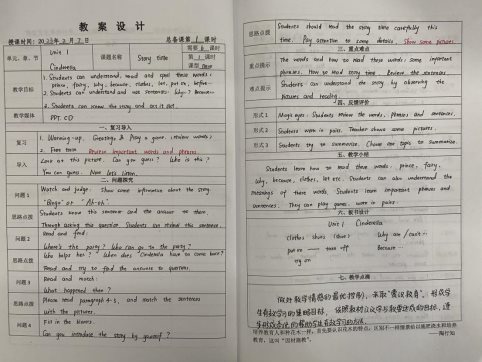 教 案 设 计
授课时间: 2023年2月2日 总备课第1课时
单元、章、节
Unit 1
Cinderella
课题名称
Story time
需要6课时
第1课时
课型 New
教学目标
1. Students can understand, read and spell these words:
prince, fairy, why, because, clothes, let, put on, before
2. Students can understand and use sentences: Why? Because
3. Students can know the story and act it out.
教学媒体
PPT, CD
一、复习导入
复习
1. Warming-up. Greetings & Play a game. (review words)
2. Free talk Review important words and phrases.
导入
Look at this picture. Can you guess? Who is she?
You can guess. Now let's listen.
二、问题探究
问题1
Watch and judge. Show some information about the story.
"Bingo" or "Ah-oh"
思路点拨
Students know this sentence and the answer to them
Through asking this question Students can extend this sentence.
问题2
Read and find:
Where's the party? Who can go to the party?
Who helps her? When does Cinderella have to come back?
思路点拨
Read and try to find the answers to questions.
问题3
Read and match:
What happened then?
思路点拨
Please read paragraph 4-5, and match the sentences
with the pictures.
问题4
Fill in the blanks.
Can you introduce the story by yourself?
思路点拨
Students should read the story time carefully this
time. Pay attention to some details. Show some pictures.
三、重点难点
重点提示
The words and how to read these words; some important
phrases. How to read story time. Review the sentences.
难点提示
Students can understand the story by observing the
pictures and reading.
四、反馈评价
形式1
Magic eyes. Students review the words, phrases and sentences.
形式2
Students work in pairs. Teacher shows some pictures.
形式3
Students try to summarize. Choose one topic to summarize.
五、教学小结
Students learn how to read these words: prince, fairy,
why, because, clothes, let, etc. Students can also understand the
meanings of these words. Students learn important phrases and
sentences. They can play games, work in pairs.
六、板书设计
Unit 1 Cinderella
clothes shoes (shoe) Why am / can't
put on — take off because
try on
七、教学点滴
做好教学情感的
采取"赏识教育",
培养教育人和种花木一样,首先要认识花木的特点,区别不同情况给以施肥浇水和培养
教育,这叫"因材施教"。 ——陶行知